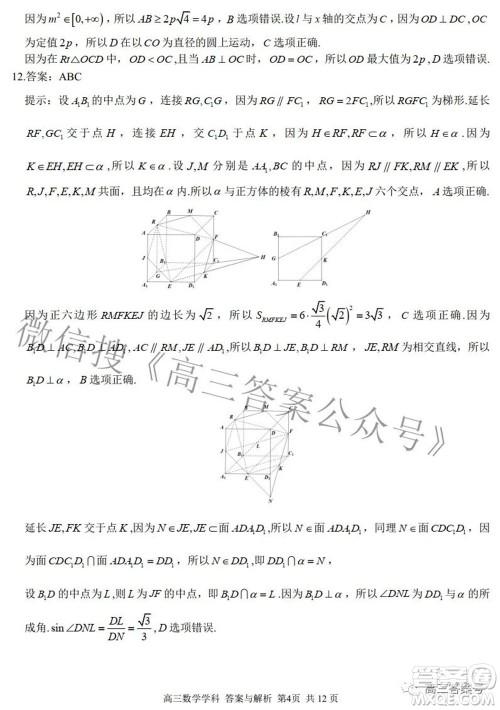 因为 m² ∈ [0,+∞), 所以 AB ≥ 2p√4 = 4p , B 选项错误.设 l 与 x 轴的交点为 C , 因为 OD ⊥ DC , OC
为定值 2p , 所以 D 在以 CO 为直径的圆上运动, C 选项正确.
因为在 Rt△OCD 中, OD < OC ,且当 AB ⊥ OC 时, OD = OC ,所以 OD 最大值为 2p , D 选项错误.
12.答案: ABC
提示: 设 A₁B₁ 的中点为 G , 连接 RG, C₁G , 因为 RG ∥ FC₁ , RG = 2FC₁ ,所以 RGFC₁ 为梯形.延长
RF, GC₁ 交于点 H , 连接 EH , 交 C₁D₁ 于点 K , 因为 H ∈ RF, RF ⊂ α , 所以 H ∈ α .因为
K ∈ EH, EH ⊂ α ,所以 K ∈ α .设 J, M 分别是 AA₁, BC 的中点, 因为 RJ ∥ FK, RM ∥ EK ,所以
R, J, F, E, K, M 共面, 且均在 α 内.所以 α 与正方体的棱有 R, M, F, K, J, E 六个交点, A 选项正确.
因为正六边形 RMFKEJ 的边长为 √2 , 所以 S_RMFKEJ = 6·√3/4(√2)² = 3√3 , C 选项正确.因为
B₁D ⊥ AC, B₁D ⊥ AD₁, AC ∥ RM, JE ∥ AD₁ ,所以 B₁D ⊥ JE, B₁D ⊥ RM , JE, RM 为相交直线,所以
B₁D ⊥ α , B 选项正确.
延长 JE, FK 交于点 K ,因为 N ∈ JE, JE ⊂ 面 ADA₁D₁ ,所以 N ∈ 面 ADA₁D₁ ,同理 N ∈ 面 CDC₁D₁ , 因
为面 CDC₁D₁ ∩ 面 ADA₁D₁ = DD₁ , 所以 N ∈ DD₁ ,即 DD₁ ∩ α = N ,
设 B₁D 的中点为 L ,则 L 为 JF 的中点, 即 B₁D ∩ α = L .因为 B₁D ⊥ α , 所以 ∠DNL 为 DD₁ 与 α 的所
成角. sin∠DNL = DL/DN = √3/3 , D 选项错误.
高三数学学科 答案与解析 第4页 共 12 页
微信搜《高三答案公众号》
高三答案号